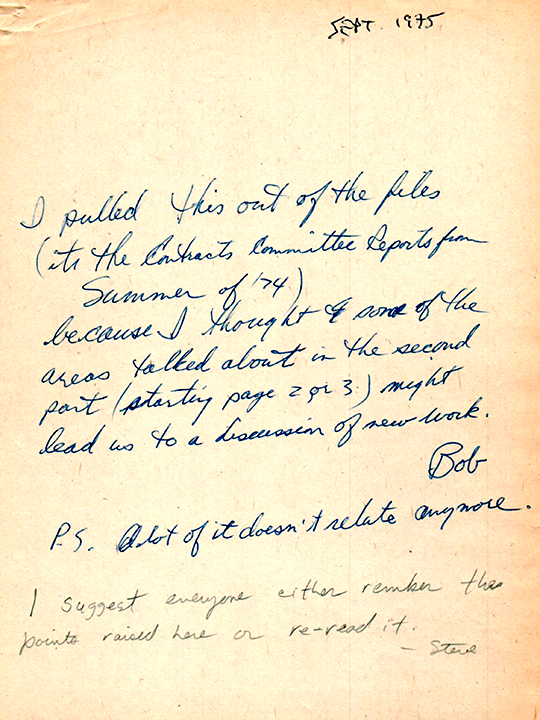 SEPT. 1975
I pulled this out of the files
(its the Contracts Committee Reports from
Summer of '74)
because I thought some of the
areas talked about in the second
part (starting page 2 or 3) might
lead us to a discussion of new work.
Bob
P.S. A lot of it doesn't relate anymore.
I suggest everyone either rember the
points raised here or re-read it.
- Steve